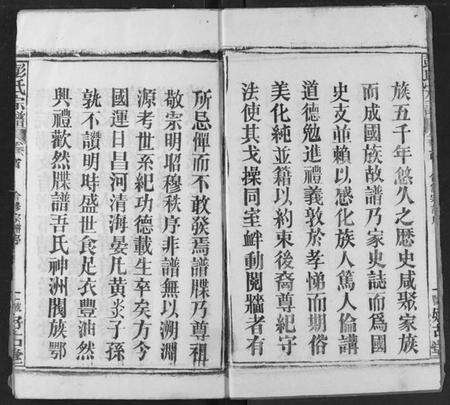 族五千年悠久之歷史咸聚家族
而成國族故譜乃家史誌而爲國
史支並賴以感化族人篤人倫講
道德勉進禮義敦於孝悌而期俗
美化純並籍以約束後裔尊紀守
法使其戈操同室衅動鬩牆者有
所忌憚而不敢發焉譜牒乃尊祖
敬宗明昭穆秩序非譜無以溯淵
源考世系紀功德載生卒矣方今
國運日昌河清海晏凡黄炎子孫
孰不讚明時盛世食足衣豐油然
興禮歡然牒譜吾氏神洲閥族鄂
彭氏宗譜